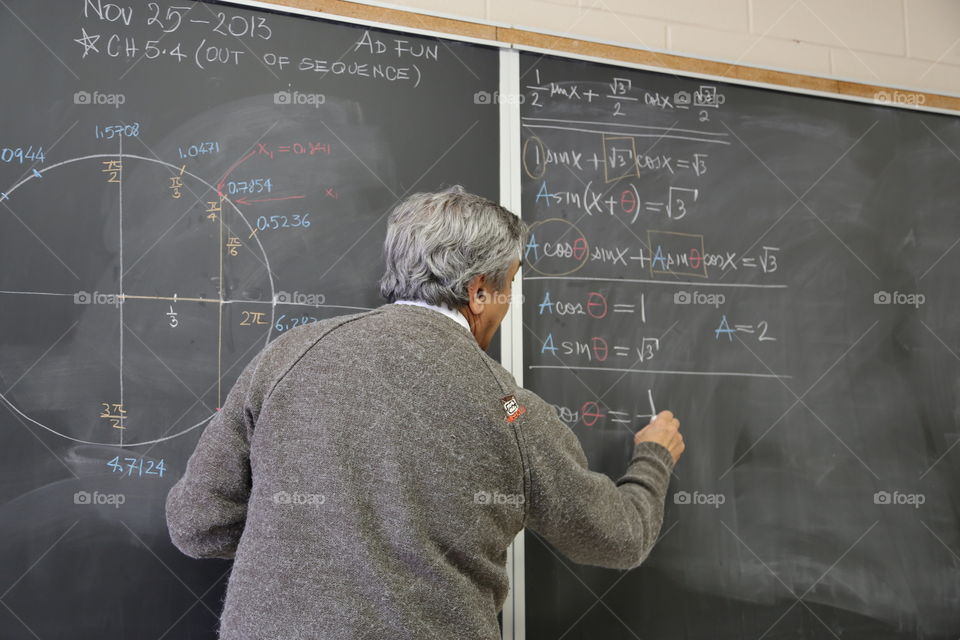 NOV 25-2013
AD FUN
☆ CH 5.4 (OUT OF SEQUENCE)
1.5708
0944
1.0471
x₁ = 0.841
π/2
π/3
0.7854
x₁
π/4
0.5236
π/6
1/3
2π
6.28
3π/2
4.7124
1/2 sinx + √3/2 cosx = √3/2
1 sinx + √3 cosx = √3
A sin(x+θ) = √3
A cosθ sinx + A sinθ cosx = √3
A cosθ = 1
A = 2
A sinθ = √3
cosθ = 1
foap